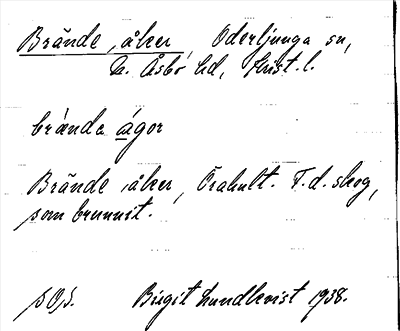 Brände, åker, Oderljunga sn,
N. Åsbo hd, Krist. l.
brände ágor
Brände åker, Örahult. T.d. skog,
som brunnit.
SOS. Birgit Lundkvist 1938.